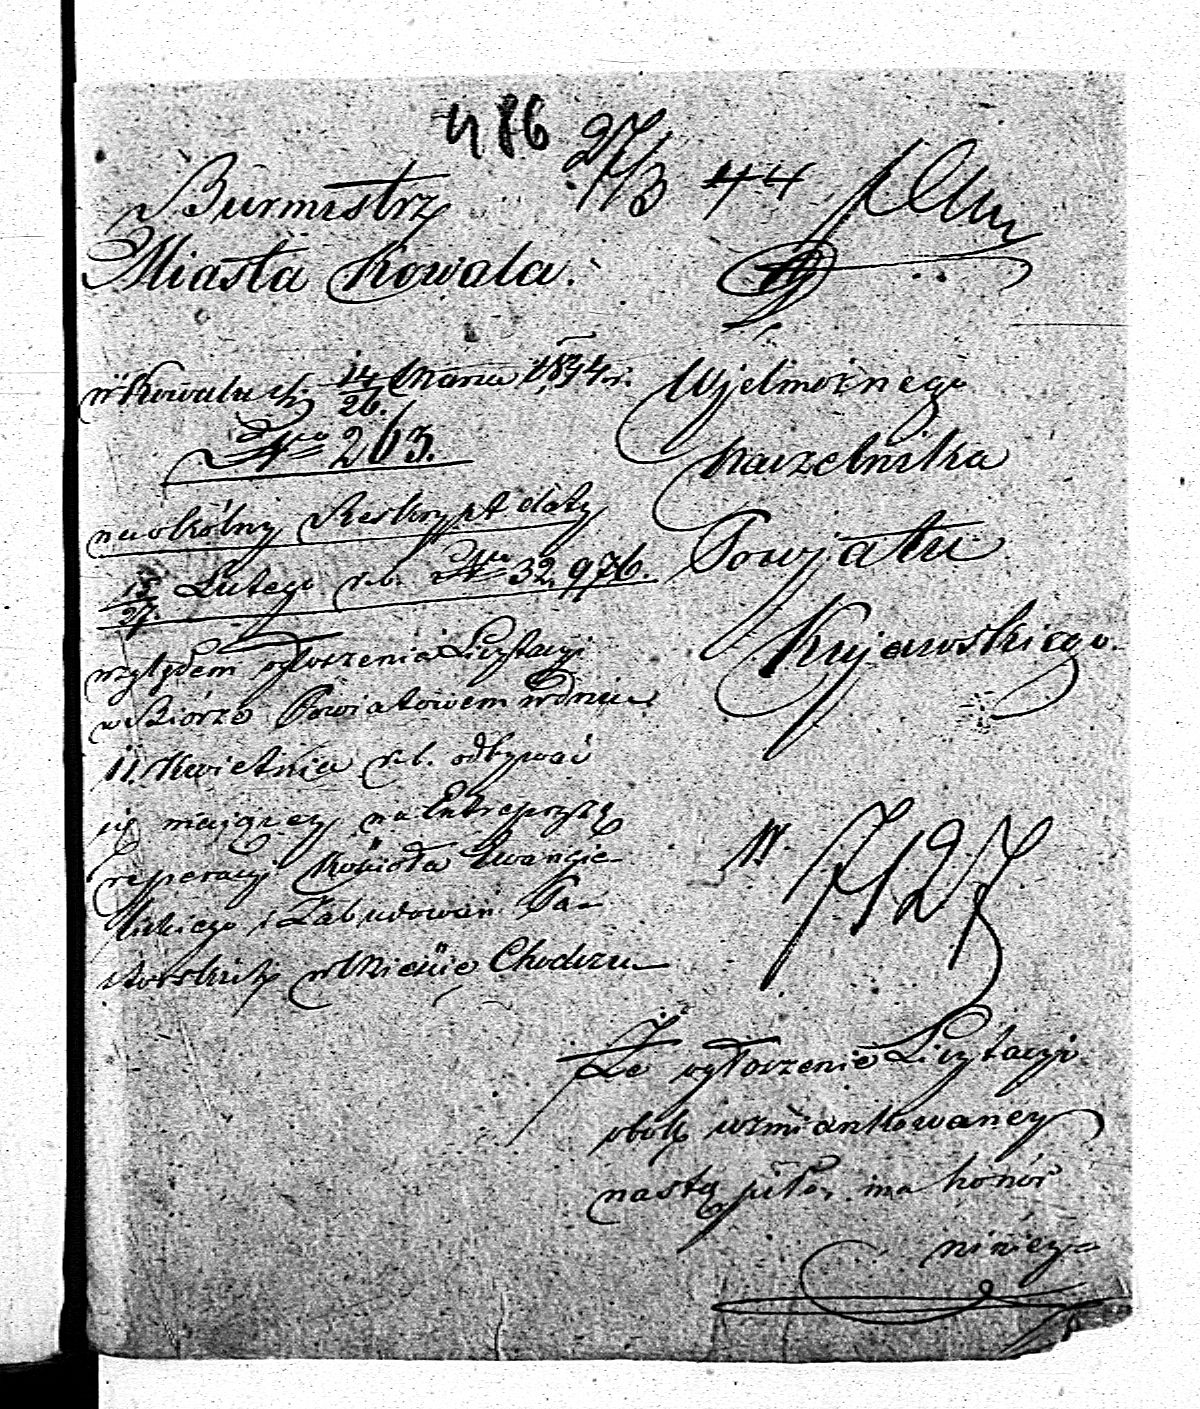 486
27/3 44
Burmistrz
Miasta Kowala.
w Kowalu d. 14/26. Marca 1844 r.
No 263.
na okólny Reskrypt daty
15/27. Lutego r. b. No 32,976.
względem ogłoszenia Licytacyi
w Biórze Powiatowem w dniu
11. Kwietnia r. b. odbywać
się maiącey na Entrepryzę
reperacyi Kościoła Ewangie-
lickiego i Zabudowań Pa-
storskich w Mieście Chodczu
Wjelmożnego
Naczelnika
Powjatu
Kujawskiego.
N. 7127
Że ogłoszenie Licytacyi
obok wzmiankowaney
nastąpiło, ma honor
ninieysz